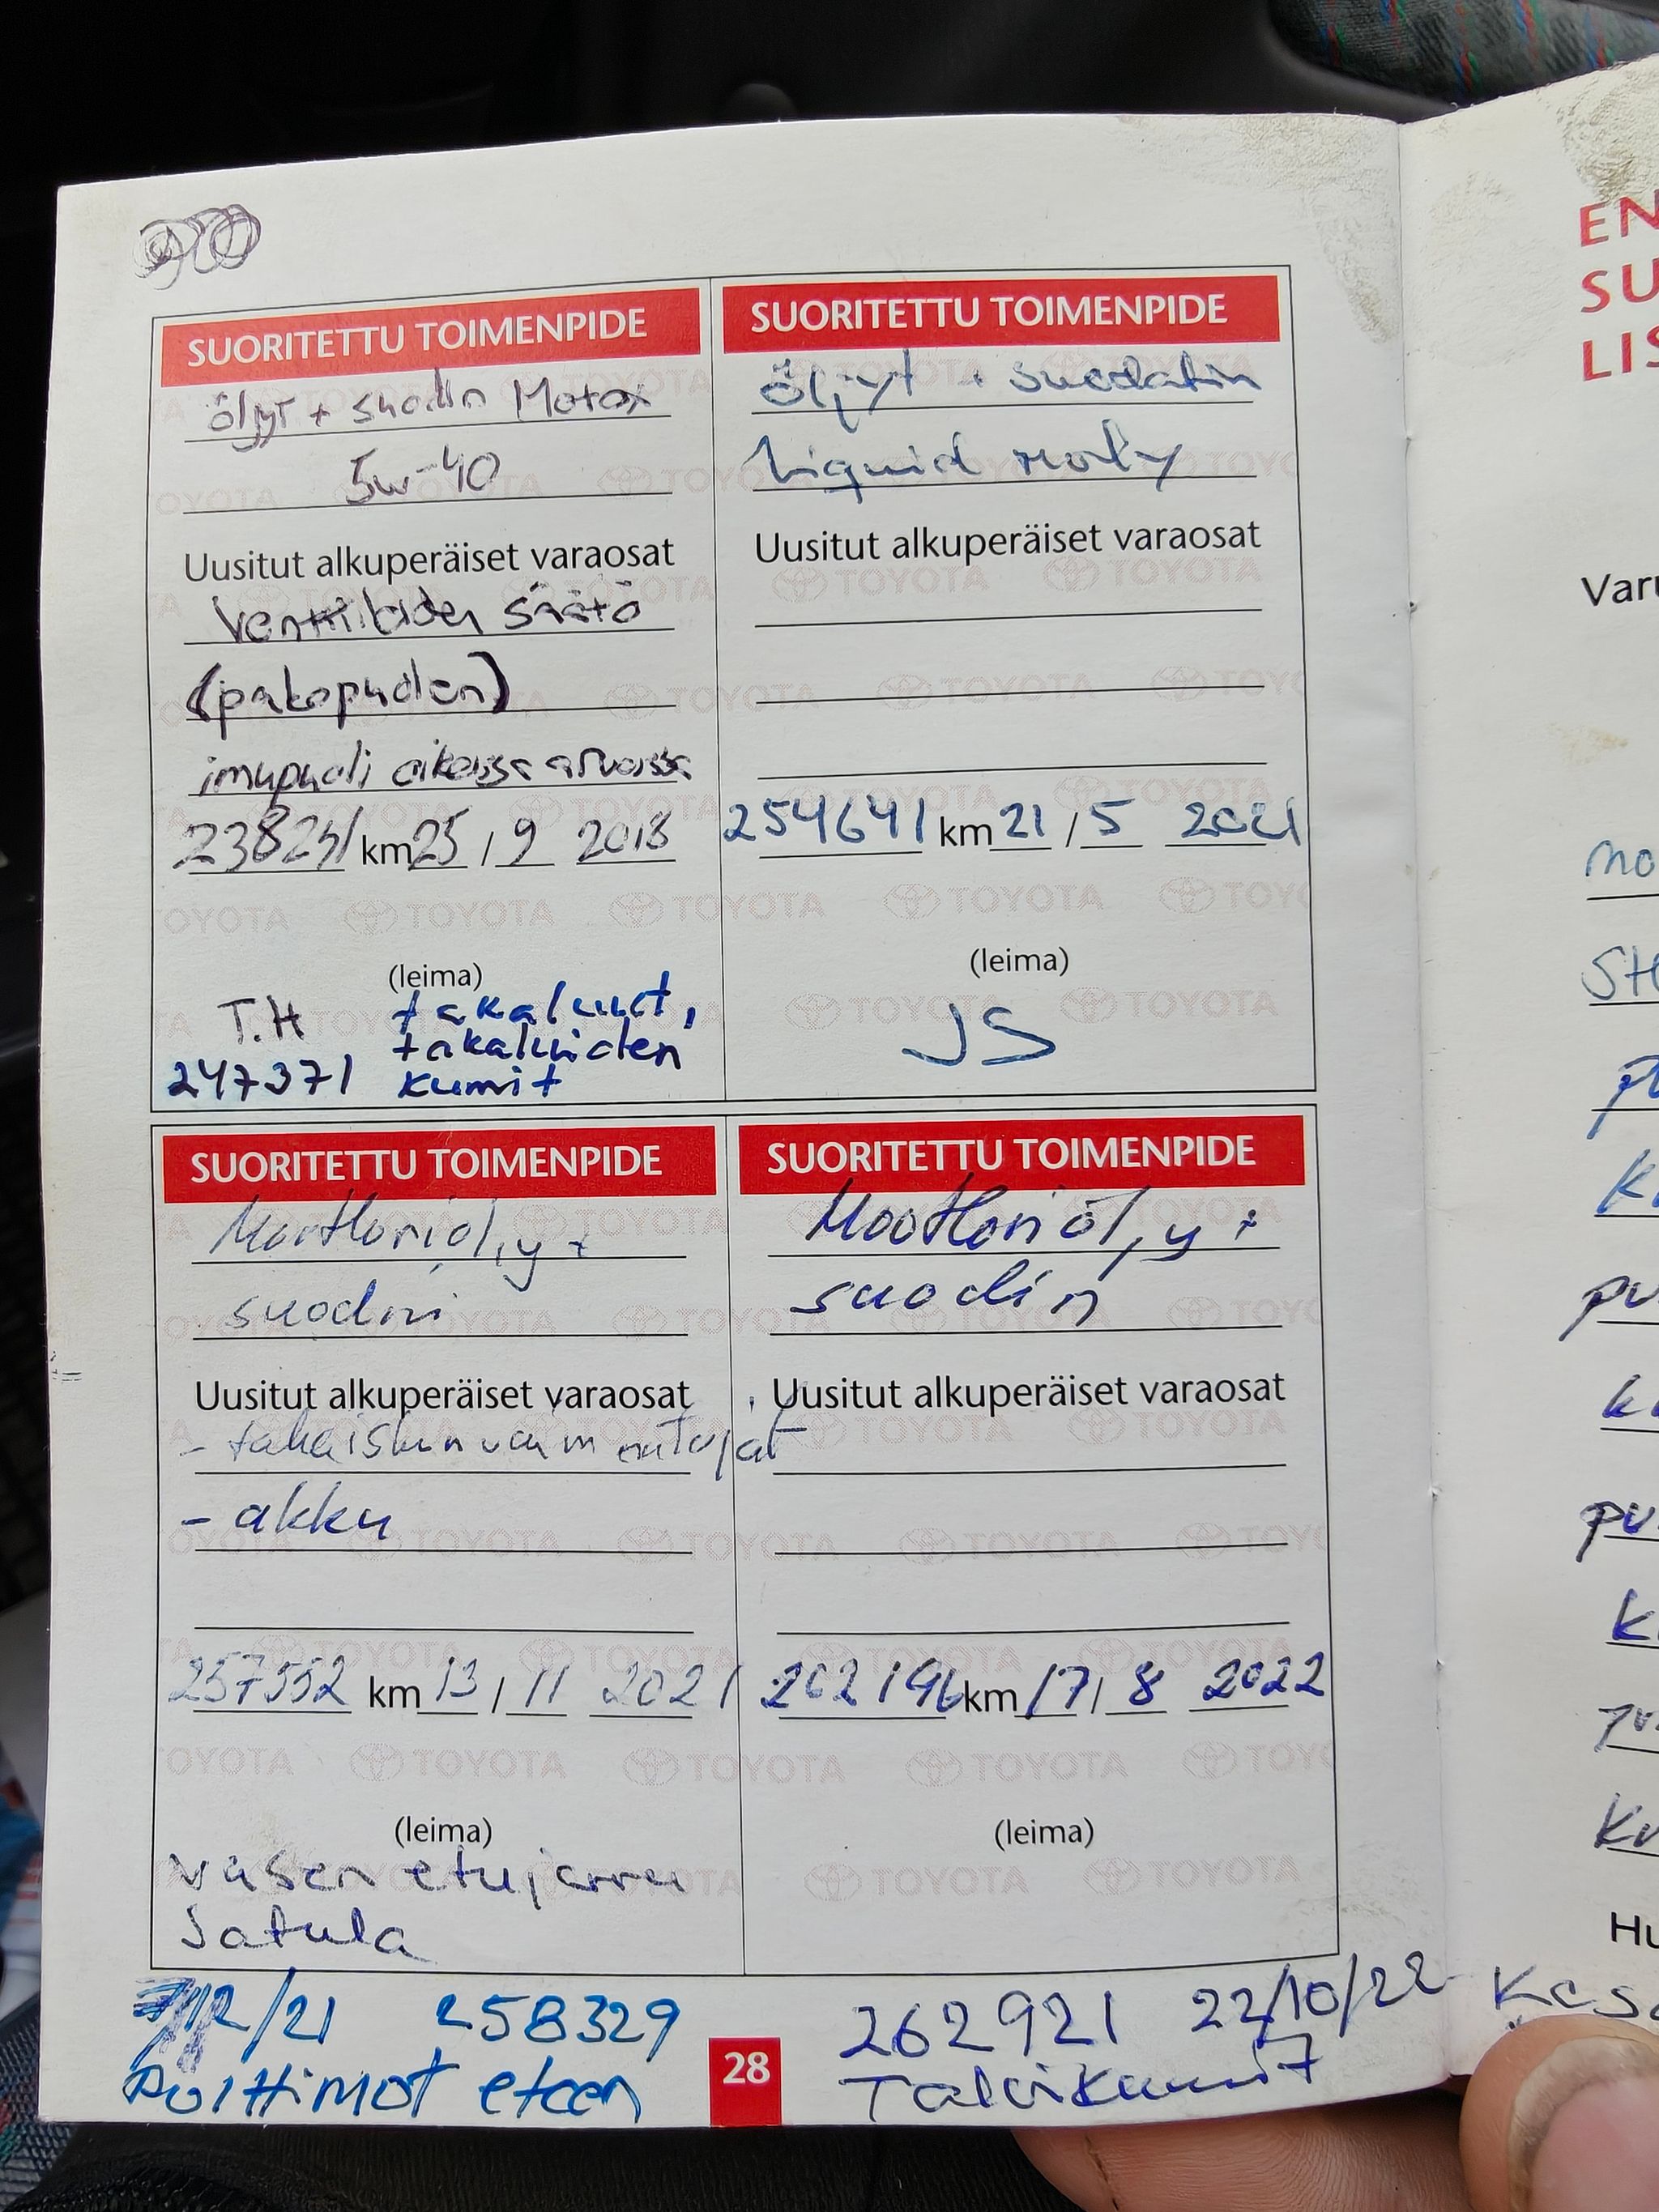 SUORITETTU TOIMENPIDE
öljyt + suodin Motox
5w-40
Uusitut alkuperäiset varaosat
Venttiilien säätö
(pakopuolen)
imupuoli oikeissa arvoissa
km 25 / 9 2018
(leima)
T.H takaluut,
takaluiden
247371 kumit
SUORITETTU TOIMENPIDE
öljyt + suodatin
Liquid moly
Uusitut alkuperäiset varaosat
254641 km 21 / 5 2021
(leima)
JS
SUORITETTU TOIMENPIDE
Moottoriöljy +
suodin
Uusitut alkuperäiset varaosat
- takaiskunvaimentajat
- akku
257552 km 13 / 11 2021
(leima)
vasen etujarru
Satula
SUORITETTU TOIMENPIDE
Moottoriöljy +
suodin
Uusitut alkuperäiset varaosat
262196 km 17 / 8 2022
(leima)
12/21 258329
Polttimot eteen
28
262921 22/10/22
Talvikumit
EN
SU
LIS
Varu
Hu